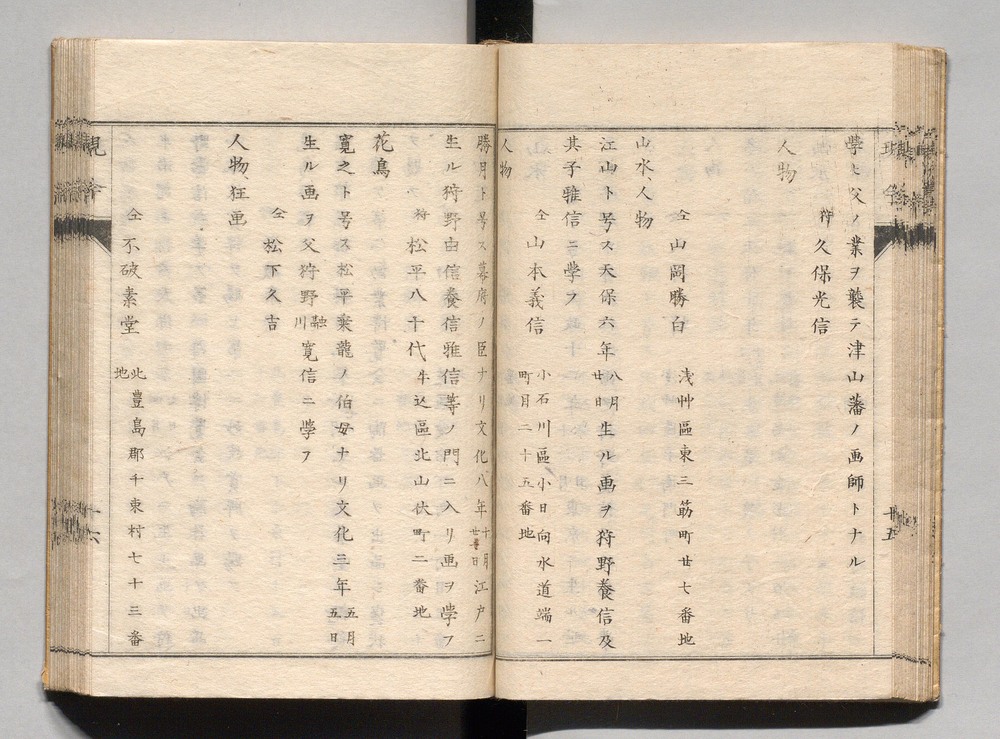 學ヒ父ノ業ヲ襲テ津山藩ノ画師トナル
狩 久保光信
人物
仝 山岡勝白 淺艸區東三筋町廿七番地
山水、人物
江山ト号ス天保六年八月廿八日生ル画ヲ狩野養信及
其子雅信ニ學フ
仝 山本義信 小石川區小日向水道端一町目二十五番地
人物
勝月ト号ス幕府ノ臣ナリ文化八年十月廿日江戸ニ
生ル狩野由信養信雅信等ノ門ニ入リ画ヲ學フ
狩 松平八十代 牛込區北山伏町二番地
花鳥
寛之ト号ス松平乗龍ノ伯母ナリ文化三年五月五日
生ル画ヲ父狩野融川寛信ニ學フ
仝 松下久吉
人物、狂画
仝 不破素堂 北豊島郡千束村七十三番地
現今
十五
十六